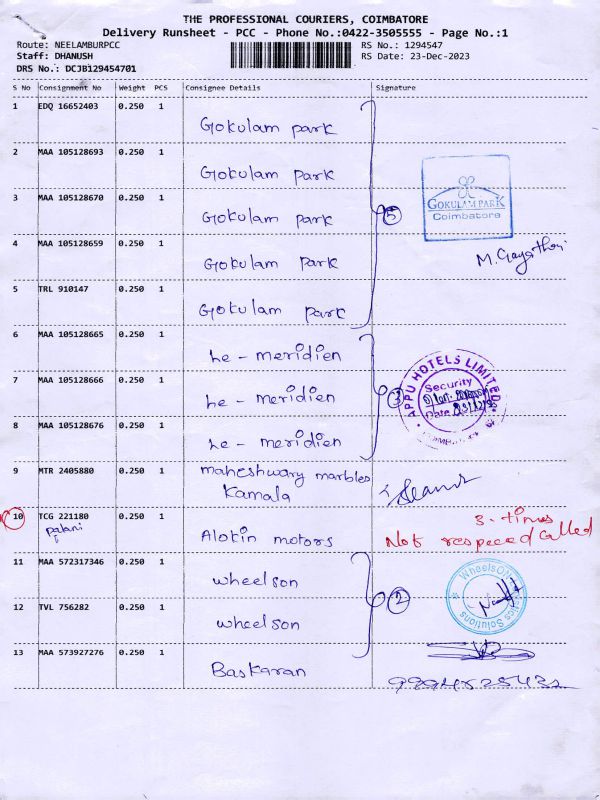 THE PROFESSIONAL COURIERS, COIMBATORE
Delivery Runsheet - PCC - Phone No.:0422-3505555 - Page No.:1
Route: NEELAMBURPCC RS No.: 1294547
Staff: DHANUSH RS Date: 23-Dec-2023
DRS No.: DCJB129454701
S No Consignment No Weight PCS Consignee Details Signature
1 EDQ 16652403 0.250 1 Gokulam park
2 MAA 105128693 0.250 1 Gokulam Park
3 MAA 105128670 0.250 1 Gokulam Park
5
GOKULAM PARK
Coimbatore
4 MAA 105128659 0.250 1 Gokulam Park
M. Gayathri
5 TRL 910147 0.250 1 Gokulam Park
6 MAA 105128665 0.250 1 Le - meridien
7 MAA 105128666 0.250 1 Le - meridien
3
APPU HOTELS LIMITED
Security
Date
8 MAA 105128676 0.250 1 Le - meridien
9 MTR 2405880 0.250 1 maheshwary marbles
Kamala
10 TCG 221180 0.250 1 Alokin motors
Palani
3. times
Not respeced Called
11 MAA 572317346 0.250 1 wheelson
2
WheelsON Solutions
12 TVL 756282 0.250 1 wheelson
13 MAA 573927276 0.250 1 Baskaran